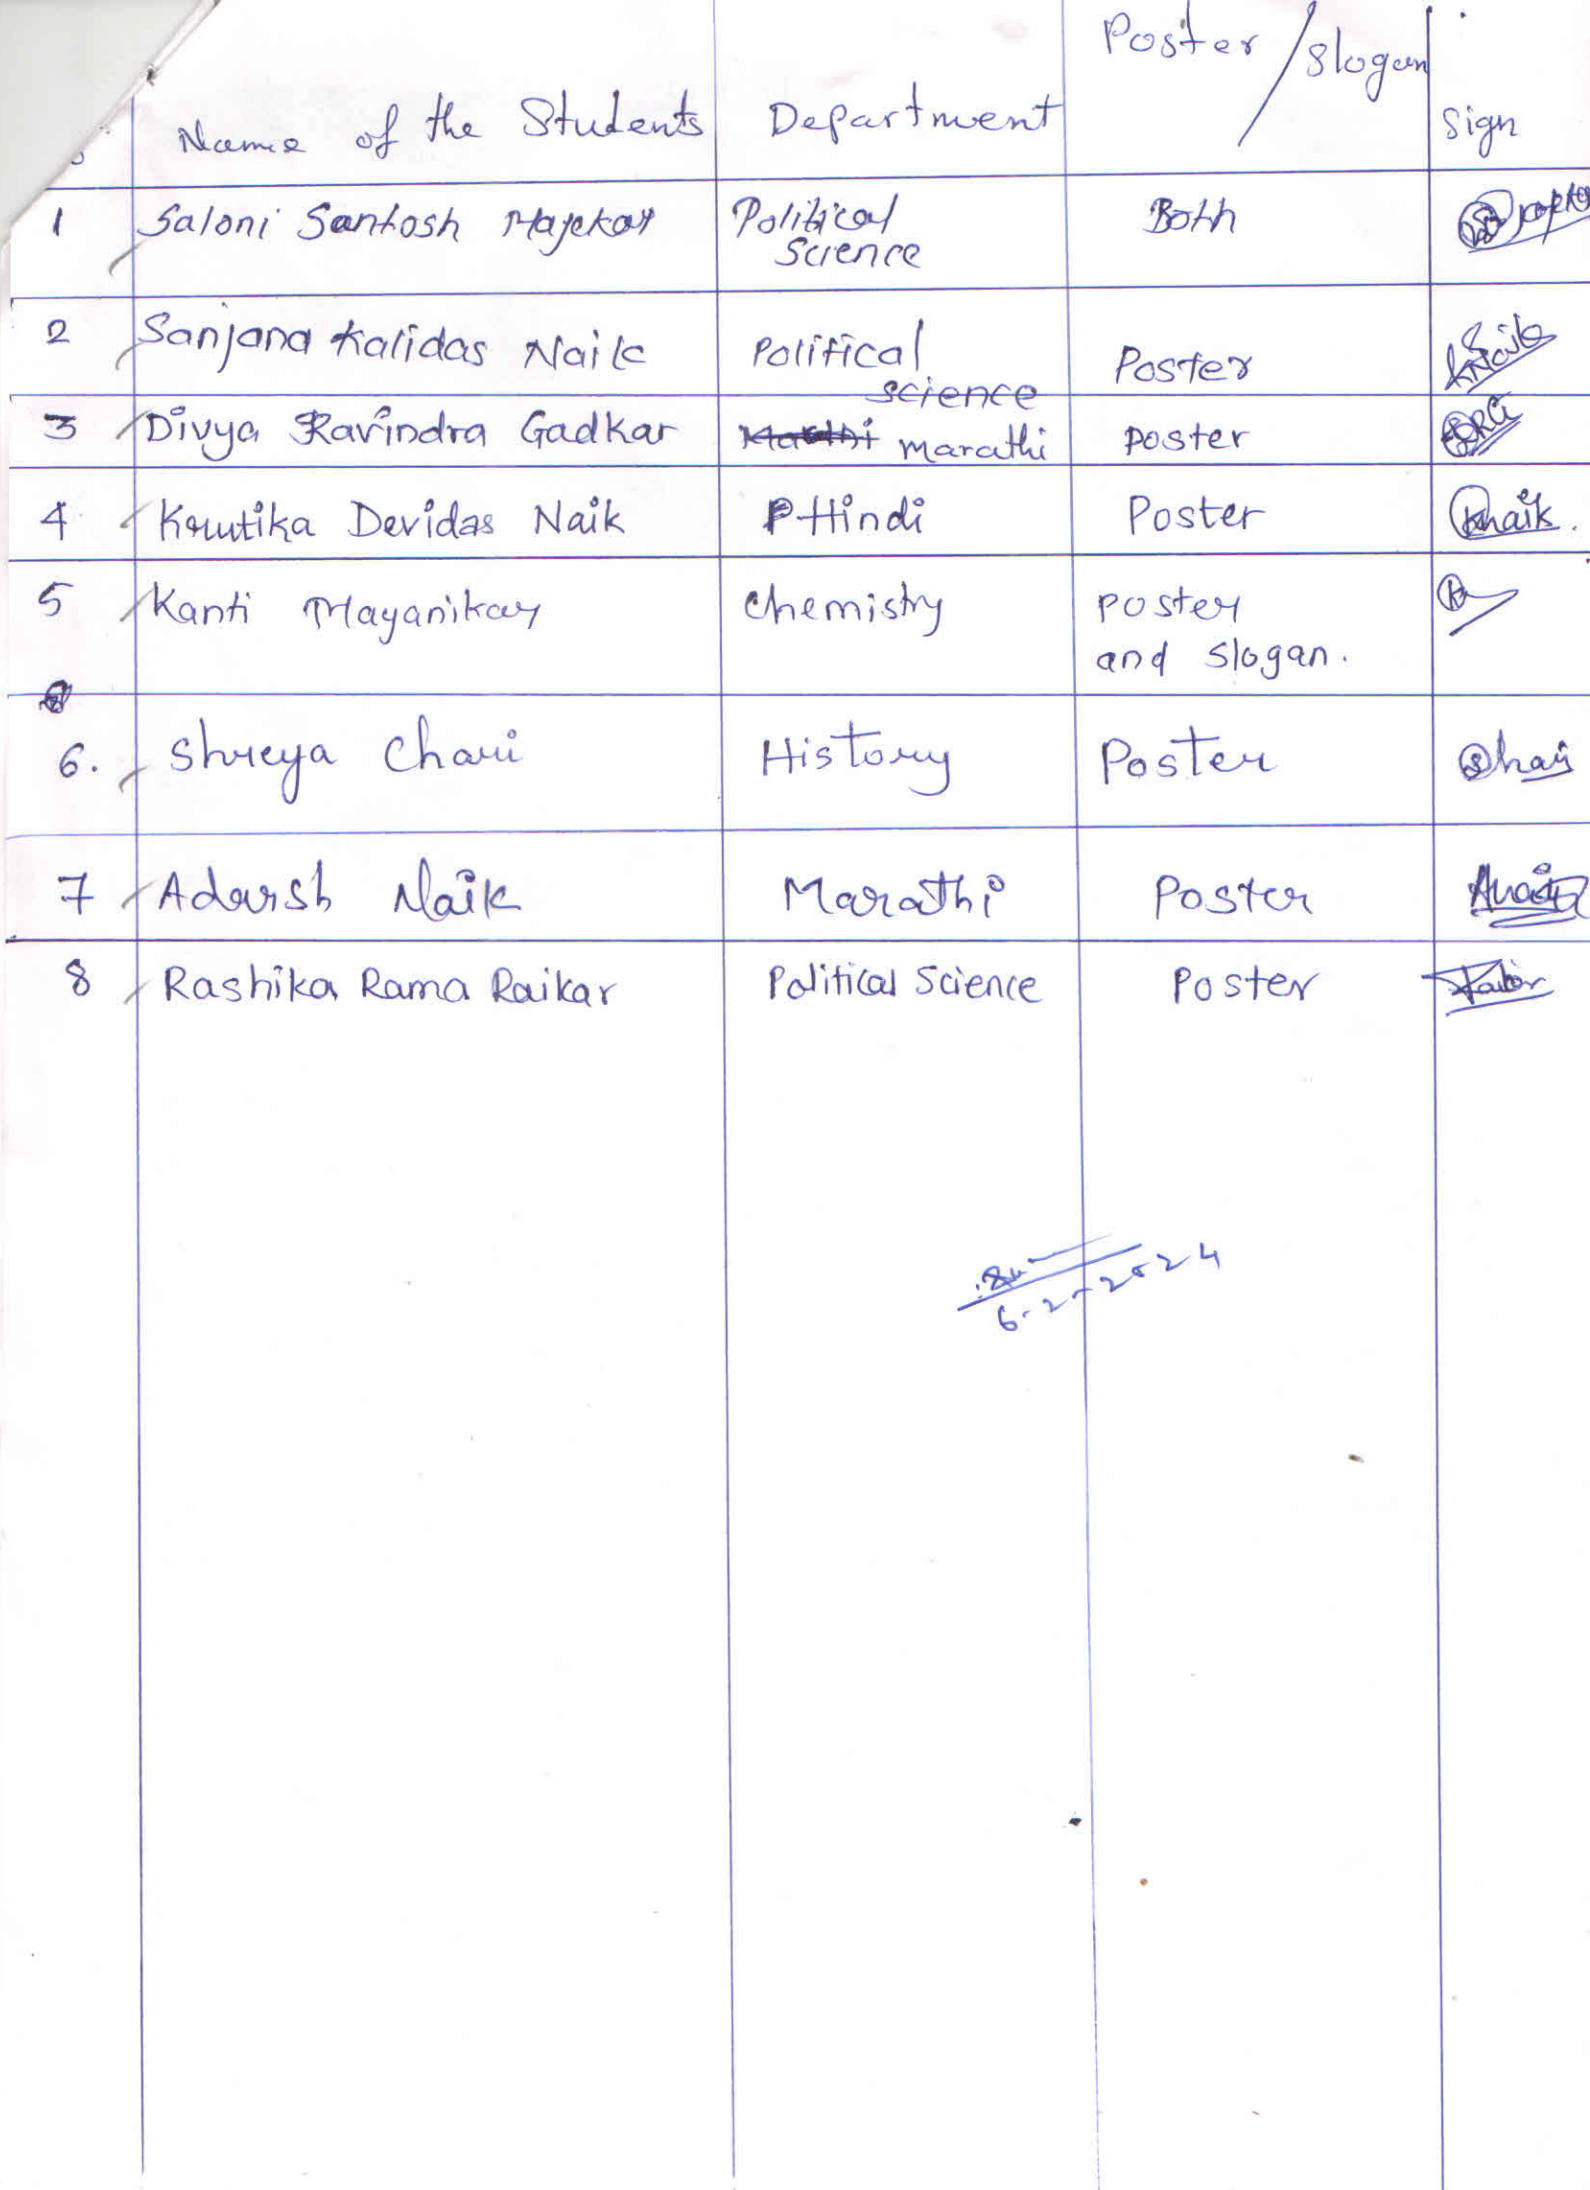 Name of the Students Department Poster / Slogan Sign
1 Saloni Santosh Majekar Political Science Both
2 Sanjana Kalidas Naik Political science Poster
3 Divya Ravindra Gadkar marathi poster
4 Krutika Devidas Naik Hindi Poster Knaik.
5 Kanti Mayanikar Chemistry poster
and slogan.
6. Shreya Chari History Poster
7 Adarsh Naik Marathi Poster
8 Rashika Rama Raikar Political Science Poster
6-2-2024